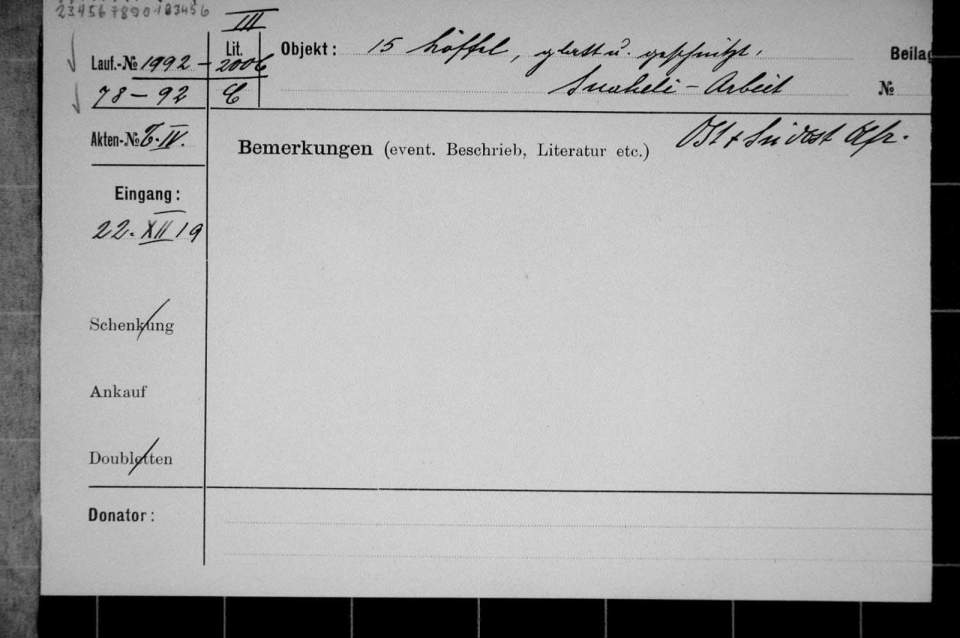 234567890123456
III
Lauf.-№ 1992 - 2006
Lit.
Objekt: 15 Löffel, glatt u. geschnitzt,
Beilag
78 - 92 C
Suaheli - Arbeit
№
Akten-№ IV.
Bemerkungen (event. Beschrieb, Literatur etc.)
Ost & Südost Afr.
Eingang:
22. XII 19
Schenkung
Ankauf
Doubletten
Donator: